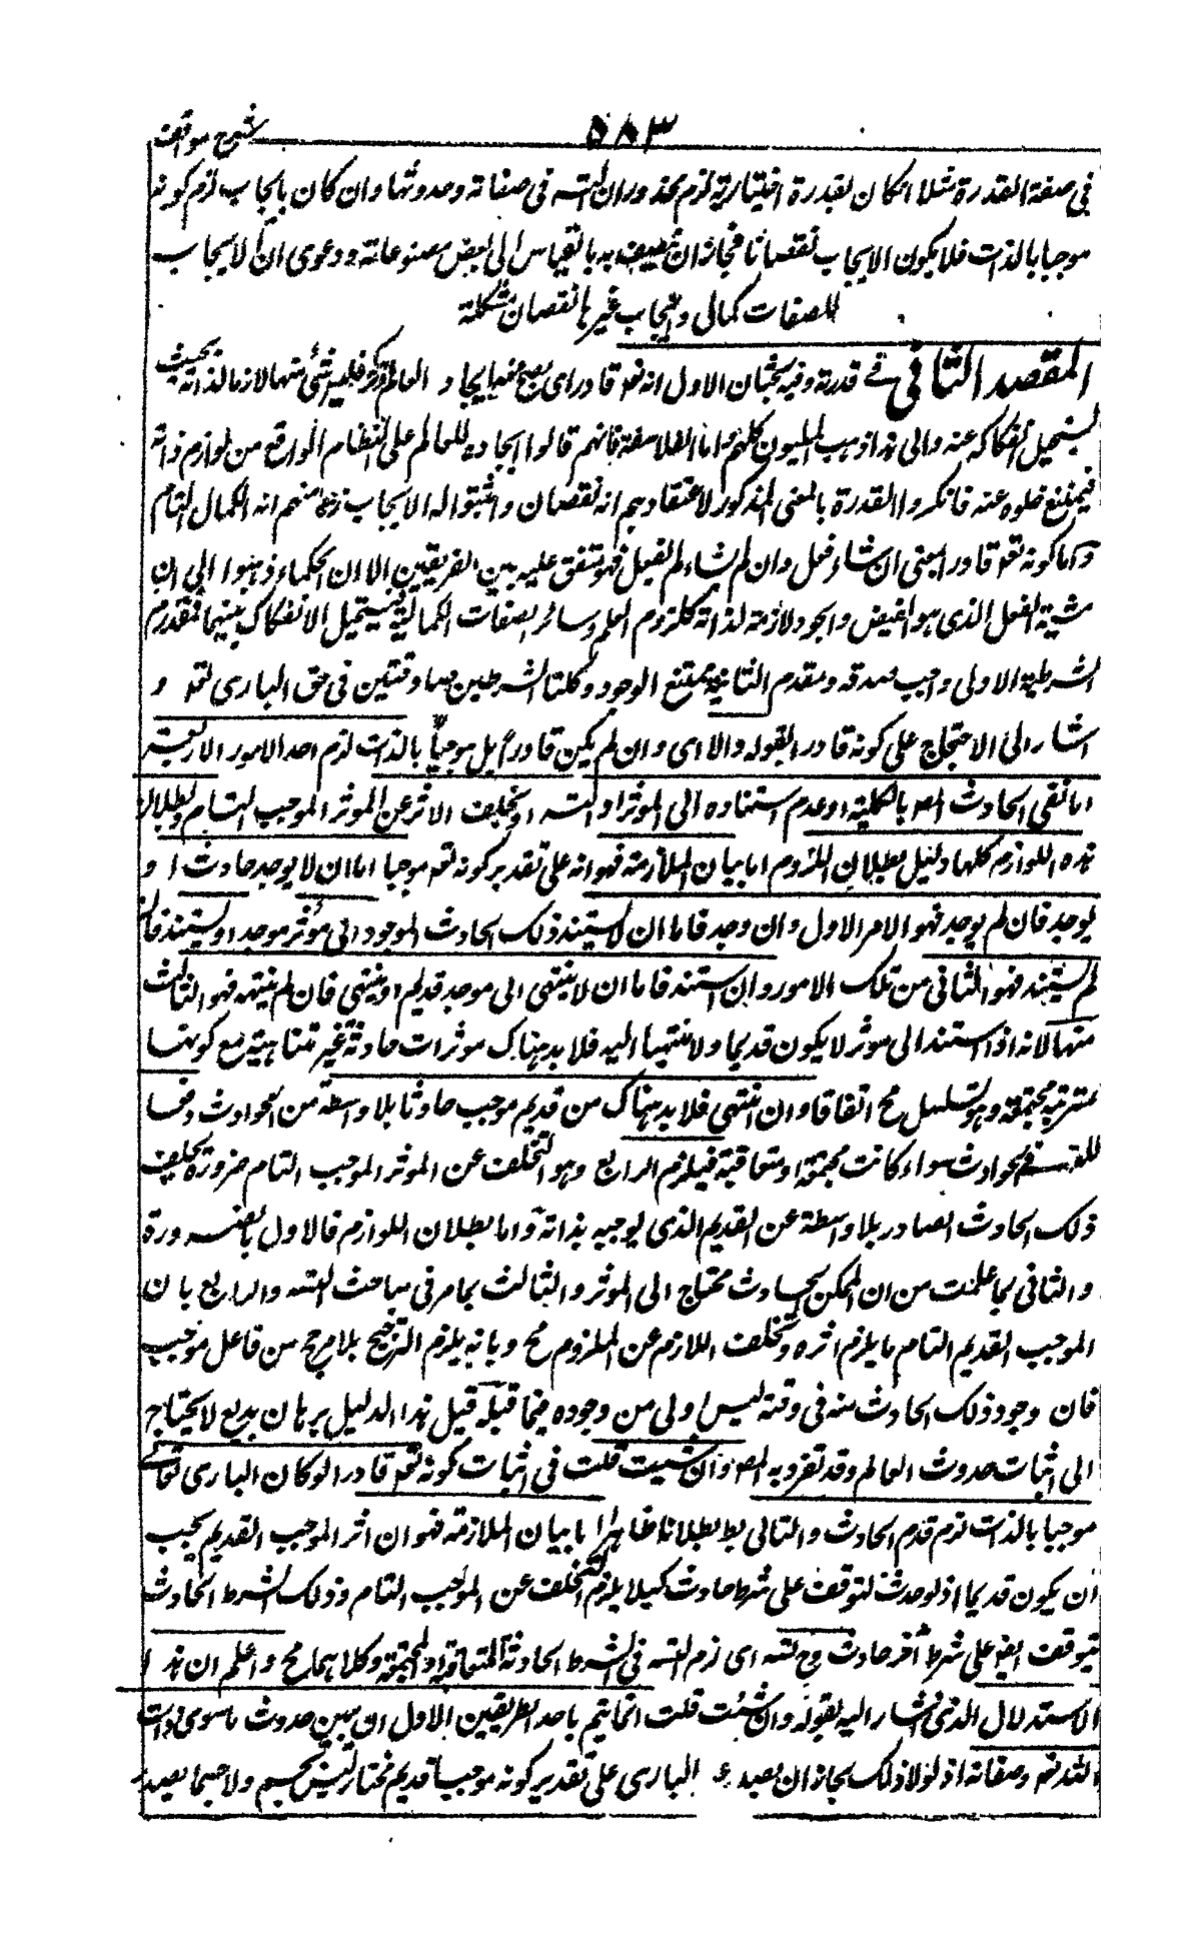 شرح مواقف
۵۸۳
فى صفة القدرة مثلا ان كان بقدرة اختيارية لزم محذوران التسه فى صفاته وحدوثها وان كان بايجاب لزم كونه
موجبا بالذات فلا يكون الايجاب نقصانا فجاز ان يتصف به بالقياس الى بعض مصنوعاته ودعوى ان الايجاب
للصفات كمال وايجاب غيرها نقصان مشكلة
المقصد الثانى فى قدرته وفيه بحثان الاول انه تعو قادر اى يصح منه ايجاد العالم وتركه فليس شئ منهما لازما لذاته بحيث
يستحيل انفكاكه عنه والى هذا ذهب المليون كلهم واما الفلاسفة فانهم قالوا ايجاده للعالم على النظام الواقع من لوازم ذاته
فيمتنع خلوه عنه فانكروا القدرة بالمعنى المذكور لاعتقادهم انه نقصان واثبتوا له الايجاب زعما منهم انه الكمال التام
واما كونه تعو قادرا بمعنى ان شاء فعل وان لم يشاء لم يفعل فهو متفق عليه بين الفريقين الا ان الحكماء ذهبوا الى ان
مشية الفعل الذى هو الفيض والجود لازمة لذاته كلزوم العلم وسائر الصفات الكمالية فيستحيل الانفكاك بينهما فمقدم
الشرطية الاولى واجب صدقه ومقدم الثانية ممتنع الوجود وكلتا الشرطيتين صادقتين فى حق البارى تعو و
اشار الى الاحتجاج على كونه قادرا بقوله والا اى وان لم يكن قادرا بل موجبا بالذات لزم احد الامور الاربعة
اما نفى الحادث المو بالكلية او عدم استناده الى الموثر او التسه او تخلف الاثر عن الموثر الموجب التام وبطلان
هذه اللوازم كلها دليل بطلان الملزوم اما بيان الملازمة فهو انه على تقدير كونه تعو موجبا اما ان لا يوجد حادث ا و
يوجد فان لم يوجد فهو الامر الاول وان وجد فاما ان لا يستند ذلك الحادث الموجود الى موثر موجد او يستند فان
لم يستند فهو الثانى من تلك الامور وان استند فاما ان لا ينتهى الى موجد قديم او ينتهى فان لم ينته فهو الثالث
منها لانه اذا استند الى موثر لا يكون قديما ولا منتهيا اليه فلا بد هناك موثرات حادثة غير متناهية مع كونها
مترتبة مجتمعة وهو تسلسل مح اتفاقا وان انتهى فلا بد هناك من قديم موجب حادثا بلا واسطة من الحوادث دفعا
للتسه فى الحوادث سواء كانت مجتمعة او متعاقبة فيلزم الرابع وهو التخلف عن الموثر الموجب التام ضرورة تخلف
ذلك الحادث الصادر بلا واسطة عن القديم الذى يوجبه بذاته واما بطلان اللوازم فالاول بالضرورة
والثانى بما علمت من ان الممكن الحادث محتاج الى الموثر والثالث بما مر فى مباحث التسه والرابع بان
الموجب القديم التام ما يلزم اثره وتخلف اللازم عن الملزوم مح وبانه يلزم الترجيح بلا مرجح من فاعل موجب
فان وجود ذلك الحادث منه فى وقته ليس اولى من وجوده فيما قبله قيل هذا الدليل برهان بديع لا يحتاج
الى اثبات حدوث العالم وقد تفرد به المصو وان شئت قلت فى اثبات كونه تعو قادرا لو كان البارى تعالى
موجبا بالذات لزم قدم الحادث والتالى بط بطلانا ظاهرا با بيان الملازمة فهو ان اثر الموجب القديم يجب
ان يكون قديما اذ لو حدث لتوقف على شرط حادث كيلا يلزم التخلف عن الموجب التام وذلك الشرط الحادث
يتوقف ايضو على شرط آخر حادث وح لتسه اى لزم التسه فى الشروط الحادثة المتعاقبة او المجتمعة وكلاهما مح واعلم ان هذا
الاستدلال الذى اشار اليه بقوله وان شئت قلت انما يتم باحد الطريقين الاول ان يبين حدوث ما سوى ذات
الله تعو وصفاته اذ لولا ذلك لجاز ان يصدر عن البارى على تقدير كونه موجبا قديم مختار ليس بجسم ولا جسما يصدر